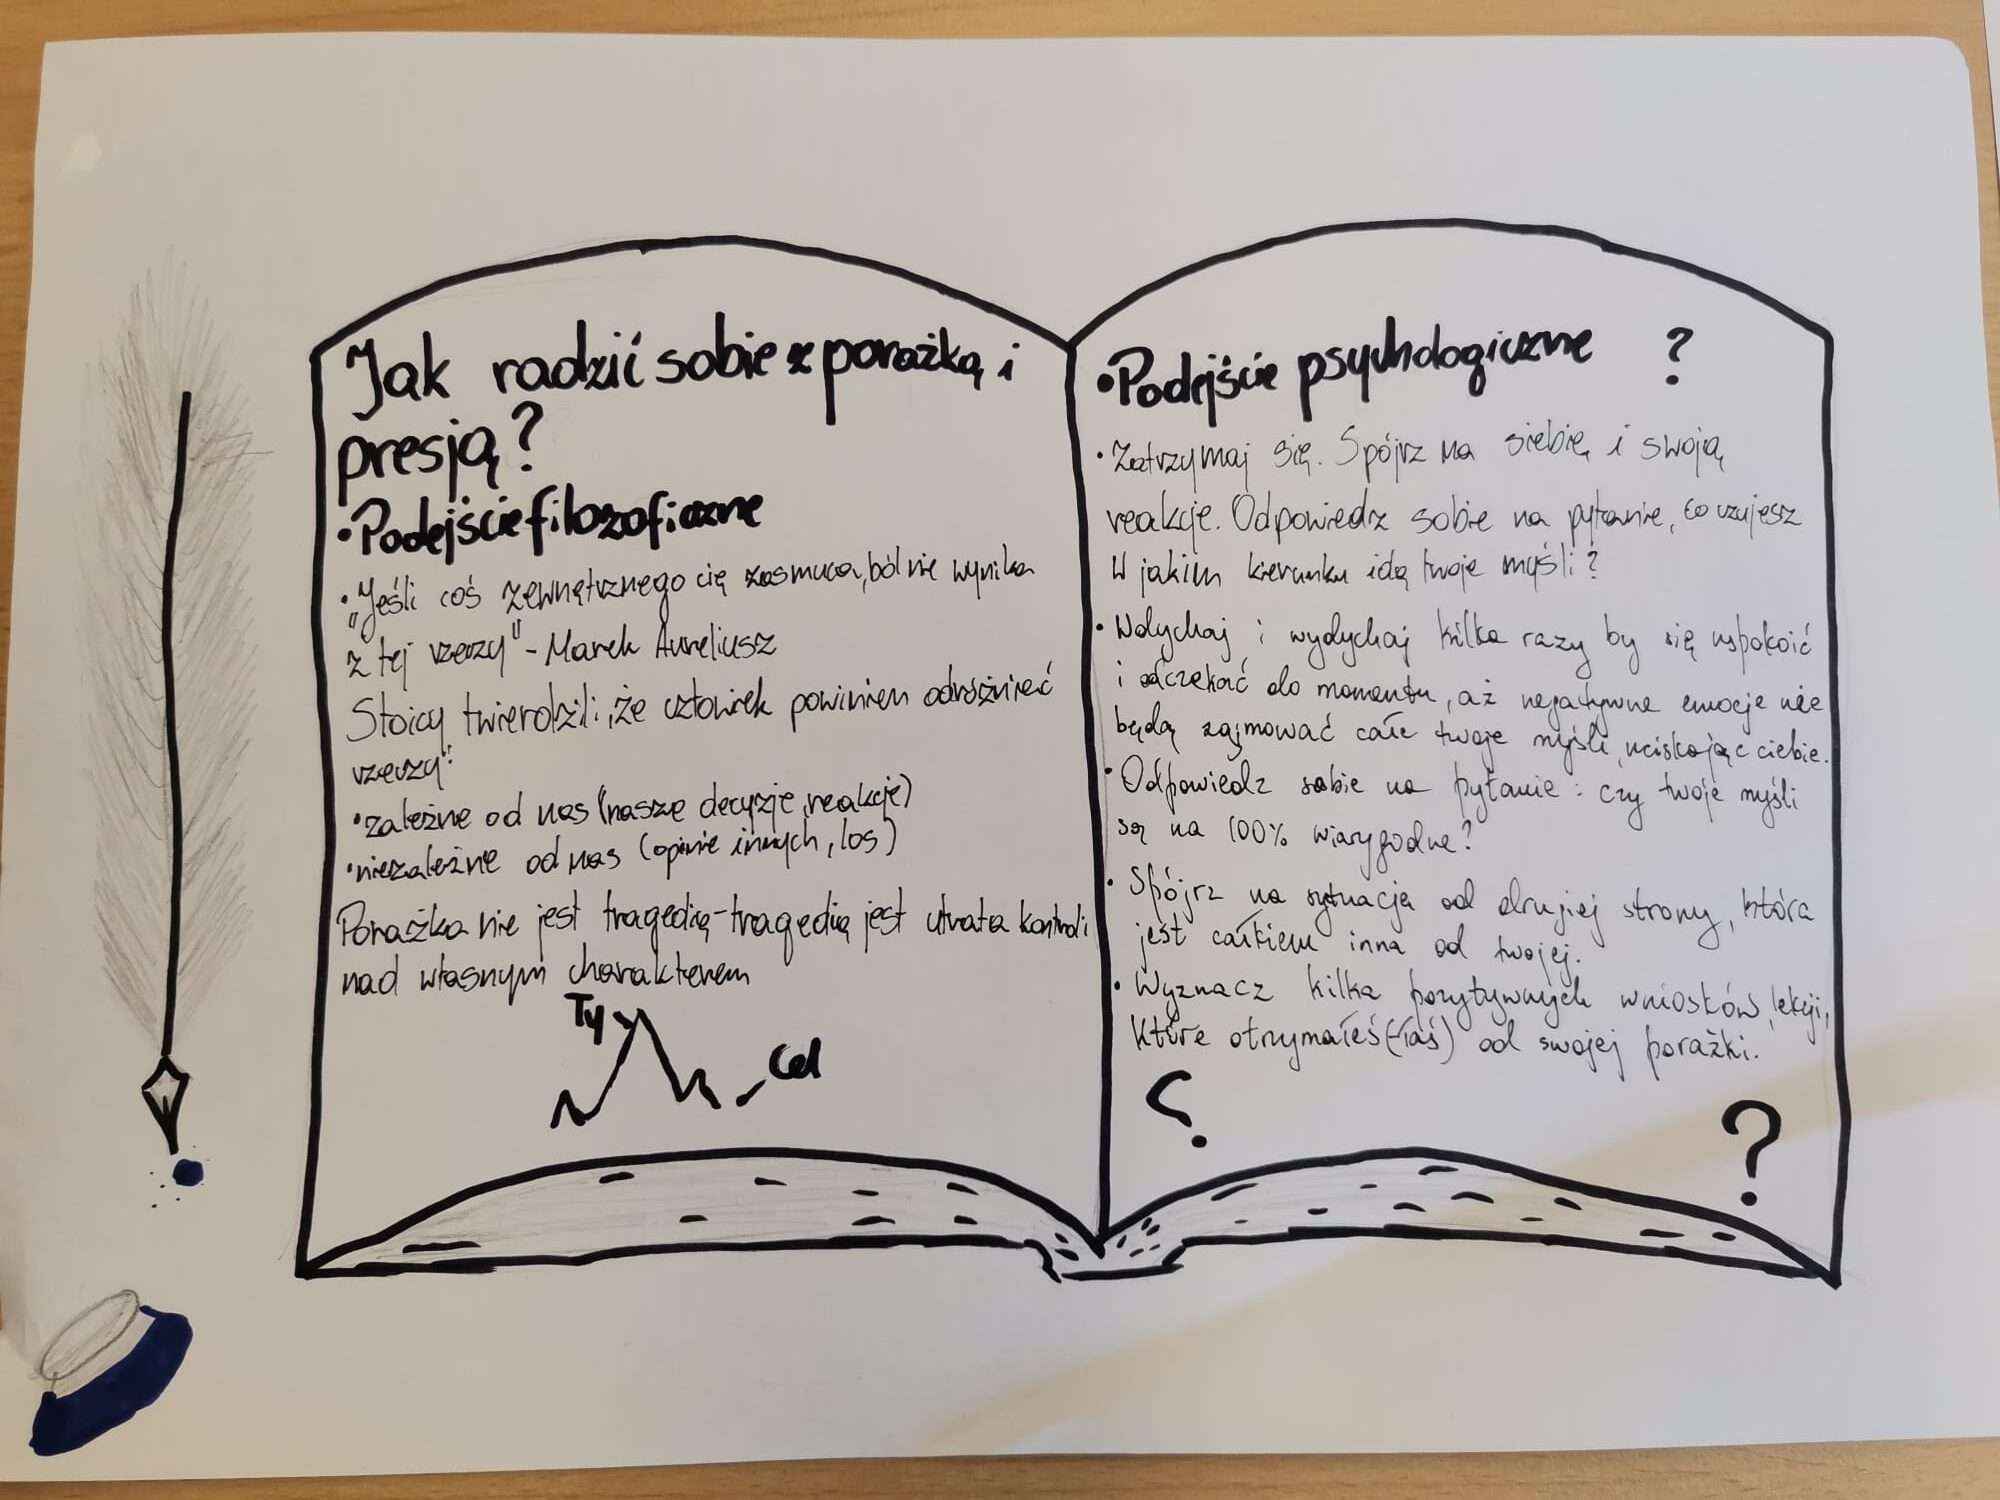 Jak radzić sobie z porażką i
presją?
• Podejście filozoficzne
• "Jeśli coś zewnętrznego cię zasmuca, ból nie wynika
z tej rzeczy" - Marek Aureliusz
Stoicy twierdzili, że człowiek powinien odróżnieć
rzeczy:
• zależne od nas (nasze decyzje, reakcje)
• niezależne od nas (opinie innych, los)
Porażka nie jest tragedią - tragedią jest utrata kontroli
nad własnym charakterem
Ty
Cel
• Podejście psychologiczne ?
• Zatrzymaj się. Spójrz na siebie i swoją
reakcje. Odpowiedz sobie na pytanie, co czujesz
W jakim kierunku idą twoje myśli?
• Wdychaj i wydychaj kilka razy by się uspokoić
i odczekać do momentu, aż negatywne emocje nie
będą zajmować całe twoje myśli, uciskając ciebie.
• Odpowiedz sobie na pytanie: czy twoje myśli
są na 100% wiarygodne?
• Spójrz na sytuacja od drugiej strony, która
jest całkiem inna od twojej.
• Wyznacz kilka pozytywnych wniosków, lekcji,
które otrzymałeś(-łaś) od swojej porażki.
? ?